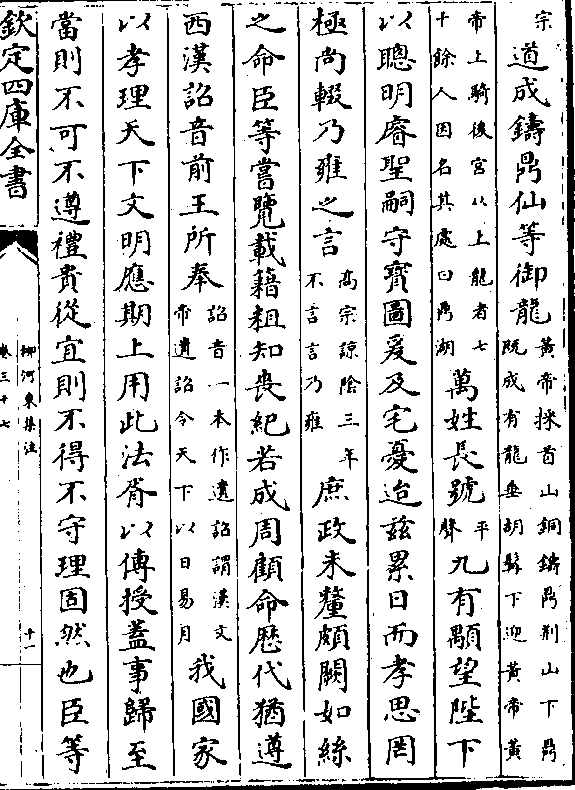 宗
道成鑄鼎仙等御龍
黄帝採首山銅鑄鼎荆山下鼎
既成有龍垂胡髯下迎黄帝黄
帝上騎後宮以上龍者七
十餘人因名其處曰鼎湖
萬姓長號
平
聲
九有顒望陛下
以聰明睿聖嗣守寳圖爰及宅憂迨兹累日而孝思罔
極尚輟乃雍之言
髙宗諒隂三年
不言言乃雍
庶政未釐頗闕如絲
之命臣等嘗覽載籍粗知喪紀若成周顧命歴代猶遵
西漢詔音前王所奉
詔音一本作遺詔謂漢文
帝遺詔令天下以日易月
我國家
以孝理天下文明應期上用此法胥以傳授葢事歸至
當則不可不遵禮貴從宜則不得不守理固然也臣等
欽定四庫全書
柳河東集注
卷三十七
十一